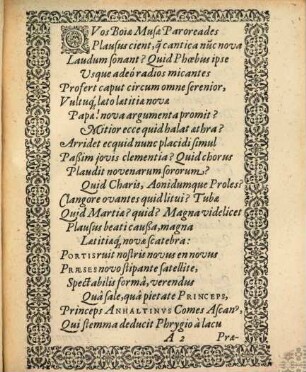 QVos Boiæ Musæ Paroreades
Plausus cient, q̃ cantica nũc nova
Laudum sonant? Quid Phœbus ipse
Usque adeò radios micantes
Profert caput circum omne serenior,
Vultuq́, lato latitia novæ
Papæ! nova argumenta promit?
Mitior ecce quid halat æthra?
Arridet ecquid nunc placidi simul
Paßim jovis clementia? Quid chorus
Plaudit novenarum sororum?
Quid Charis, Aonidumque Proles?
Clangore ovantes quid litui? Tubæ
Quid Martiæ? quid? Magna videlicet
Plausus beati caussa, magna
Latitiaq́, novæ scatebra:
PORTIS ruit nostris novus en novus
PRÆSES novo stipante satellite,
Spectabilis formâ, verendus
Quà sale, quà pietate PRINCEPS,
Princeps ANHALTINVS Comes Ascan⁹,
Qui stemma deducit Phrygio à lacu
A 2 Præ-